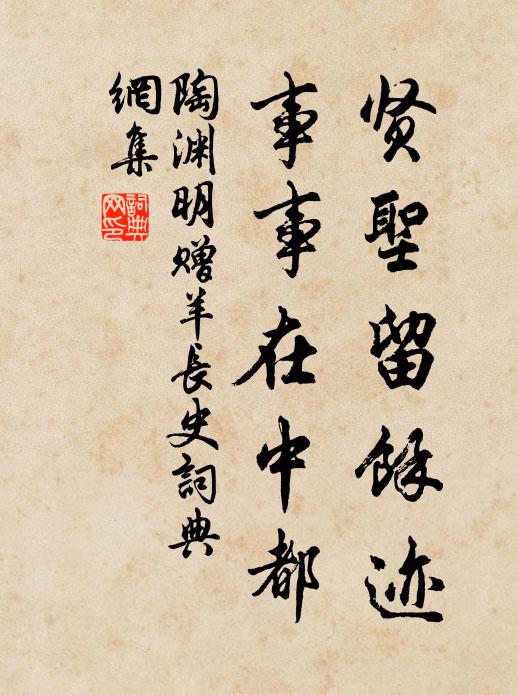 贤聖留餘迹
事事在中都
陶渊明赠羊長史詞典
網集
詞典
网印